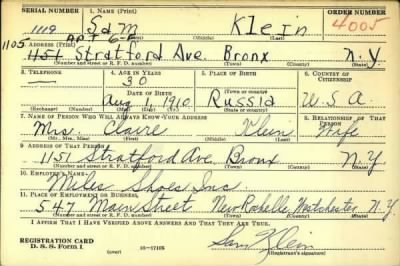 SERIAL NUMBER 1. NAME (Print) ORDER NUMBER
1119 Sam Klein 4005
(First) (Middle) (Last)
1105 APT 6-E
2. ADDRESS (Print)
1151 Stratford Ave. Bronx N.Y
(Number and street or R. F. D. number) (Town) (County) (State)
3. TELEPHONE 4. AGE IN YEARS 5. PLACE OF BIRTH 6. COUNTRY OF CITIZENSHIP
30
DATE OF BIRTH Russia U.S.A.
Aug 1910
(Town or county)
(Exchange) (Number) (Mo.) (Day) (Yr.) (State or country)
7. NAME OF PERSON WHO WILL ALWAYS KNOW YOUR ADDRESS 8. RELATIONSHIP OF THAT PERSON
Mrs. Claire Klein Wife
(Mr., Mrs., Miss) (First) (Middle) (Last)
9. ADDRESS OF THAT PERSON
1151 Stratford Ave. Bronx N.Y.
(Number and street or R. F. D. number) (Town) (County) (State)
10. EMPLOYER'S NAME
Miles Shoes Inc.
11. PLACE OF EMPLOYMENT OR BUSINESS
547 Main Street New Rochelle Westchester N.Y.
(Number and street or R. F. D. number) (Town) (County) (State)
I AFFIRM THAT I HAVE VERIFIED ABOVE ANSWERS AND THAT THEY ARE TRUE.
REGISTRATION CARD
D. S. S. Form 1 (over) 16—17105 Sam Klein
(Registrant's signature)